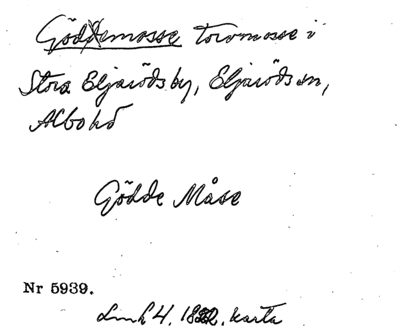 Göddemosse torvmosse i
Stora Eljaröds by, Eljaröds sn,
Albo hd
Gödde Måse
Nr 5939.
Lmk 4. 1822. karta